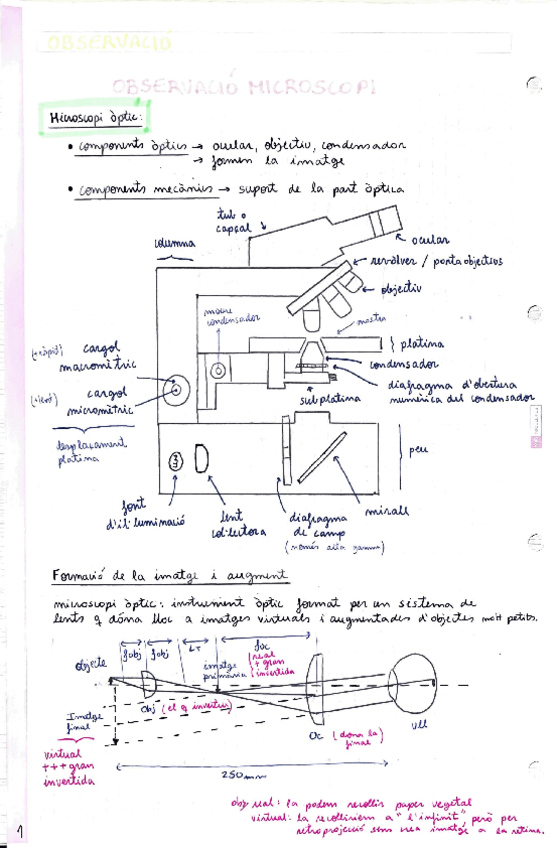 OBSERVACIÓ
OBSERVACIÓ MICROSCOPI
Microscopi òptic:
• components òptics → ocular, objectiu, condensador
→ formen la imatge
• components mecànics → suport de la part òptica
tub o
capçal
columna
ocular
revòlver / porta objectius
objectiu
moure
condensador
mostra
platina
condensador
diafragma d'obertura
numèrica del condensador
subplatina
(+ràpid) cargol
macromètric
(+lent) cargol
micromètric
desplaçament
platina
peu
font
d'il·luminació
lent
col·lectora
diafragma
de camp
(només alta gamma)
mirall
Formació de la imatge i augment
microscopi òptic: instrument òptic format per un sistema de
lents q dóna lloc a imatges virtuals i augmentades d'objectes molt petits.
objecte
fobj
fobj
LT
foc
imatge
primària
real
+ gran
invertida
Obj (el q inverteix)
Imatge
final
virtual
+++gran
invertida
Oc (dona la)
final
ull
250mm
obj real: la podem recollir paper vegetal
virtual: la recolliríem a "l'infinit", però per
retroprojecció sens crea imatge a la retina.
1